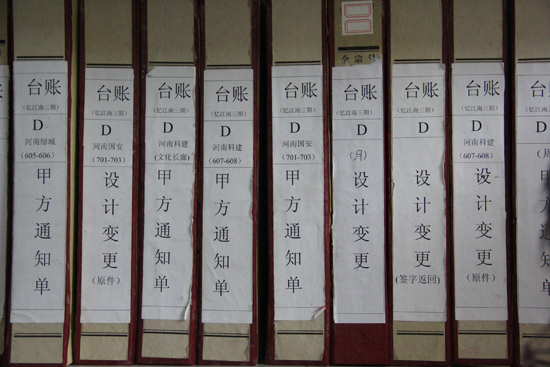 台账
(忆江南三期)
D
河南绿城
(605-606)
甲方通知单
台账
(忆江南三期)
D
河南国安
(701-703)
设计变更
(原件)
台账
(忆江南三期)
D
河南科建
(文化长廊)
甲方通知单
台账
(忆江南三期)
D
河南科建
(607-608)
甲方通知单
台账
(忆江南三期)
D
河南国安
(701-703)
甲方通知单
全宗号
台账
(忆江南三期)
D
(月)
设计变更
台账
(忆江南三期)
D
设计变更
(签字返回)
台账
(忆江南三期)
D
河南科建
(607-608)
设计变更
(原件)
台
(忆江南三
D